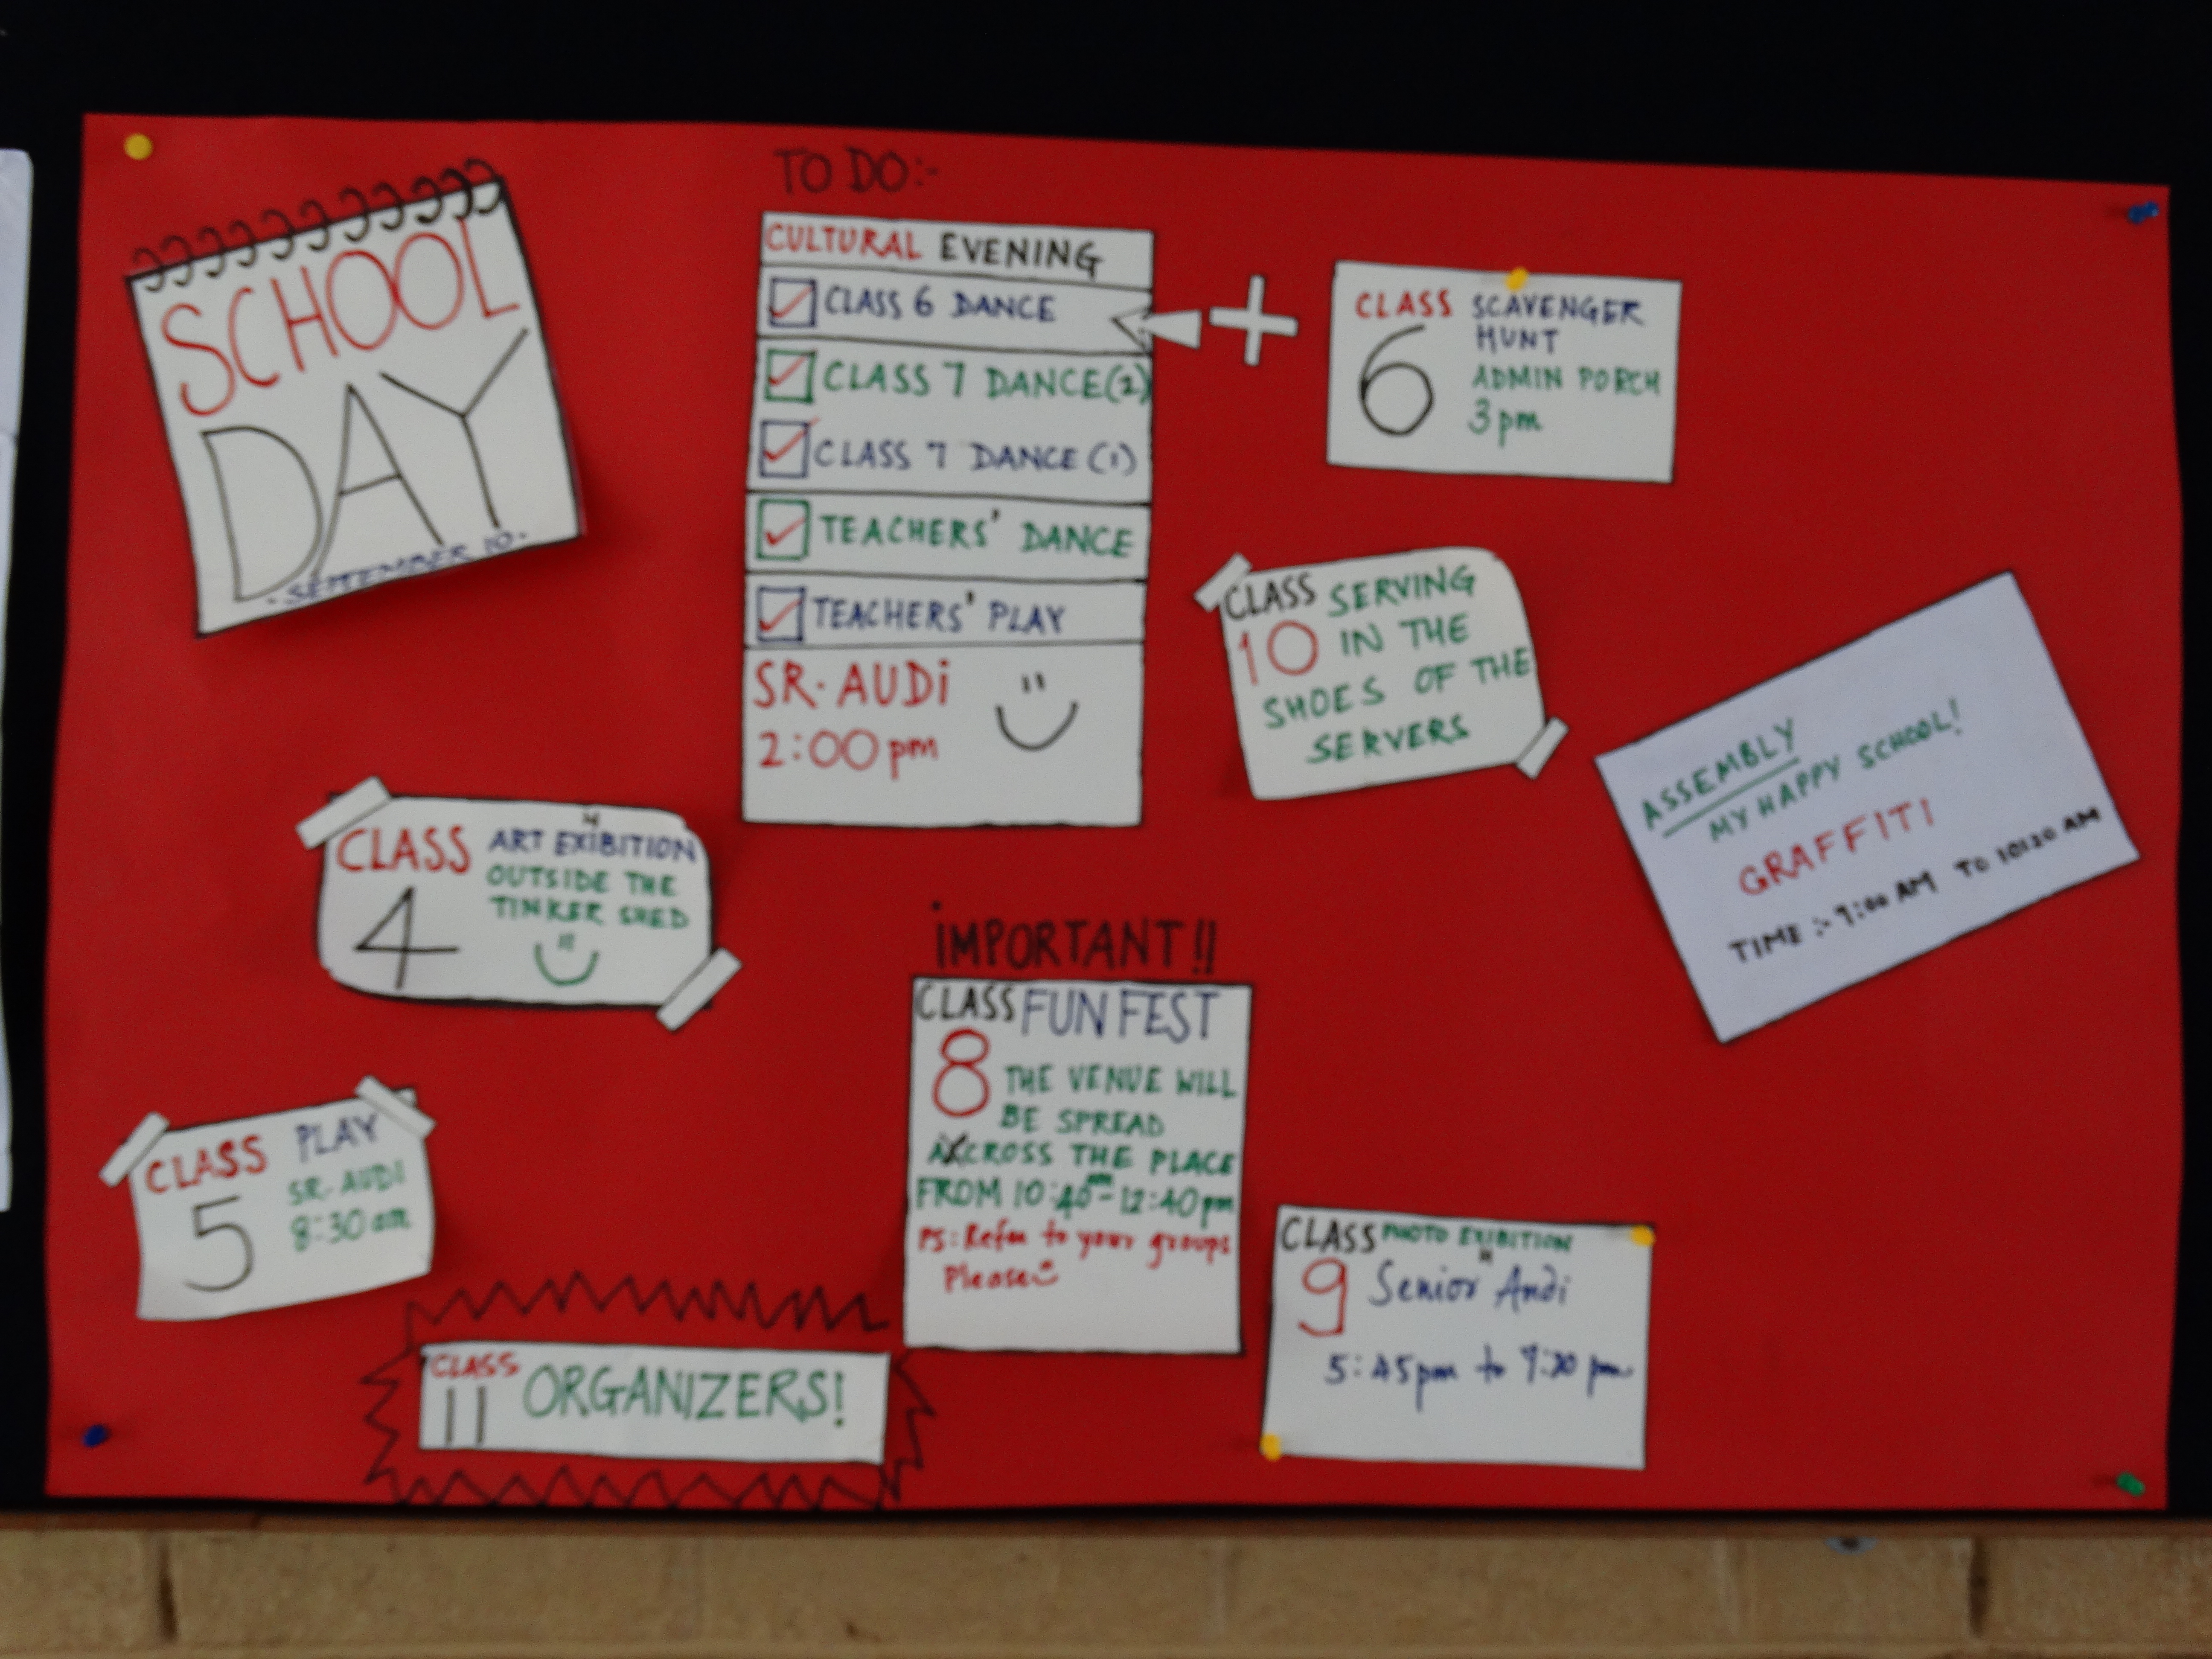 SCHOOL
DAY
- SEPTEMBER 10 -
TO DO:-
CULTURAL EVENING
CLASS 6 DANCE
CLASS 7 DANCE (2)
CLASS 7 DANCE (1)
TEACHERS' DANCE
TEACHERS' PLAY
SR. AUDi
2:00 pm
+
CLASS 6
SCAVENGER
HUNT
ADMIN PORCH
3 pm
CLASS 10
SERVING
IN THE
SHOES OF THE
SERVERS
ASSEMBLY
MY HAPPY SCHOOL!
GRAFFITI
TIME :- 9:00 AM TO 10:20 AM
CLASS 4
ART EXHIBITION
OUTSIDE THE
TINKER SHED
CLASS 5
PLAY
SR. AUDI
8:30 am
iMPORTANT!!
CLASS 8
FUN FEST
THE VENUE WILL
BE SPREAD
ACROSS THE PLACE
FROM 10:40 am - 12:40 pm
PS: Refer to your groups
Please
CLASS 9
PHOTO EXHIBITION
Senior Audi
5:45 pm to 7:30 pm
CLASS 11
ORGANIZERS!